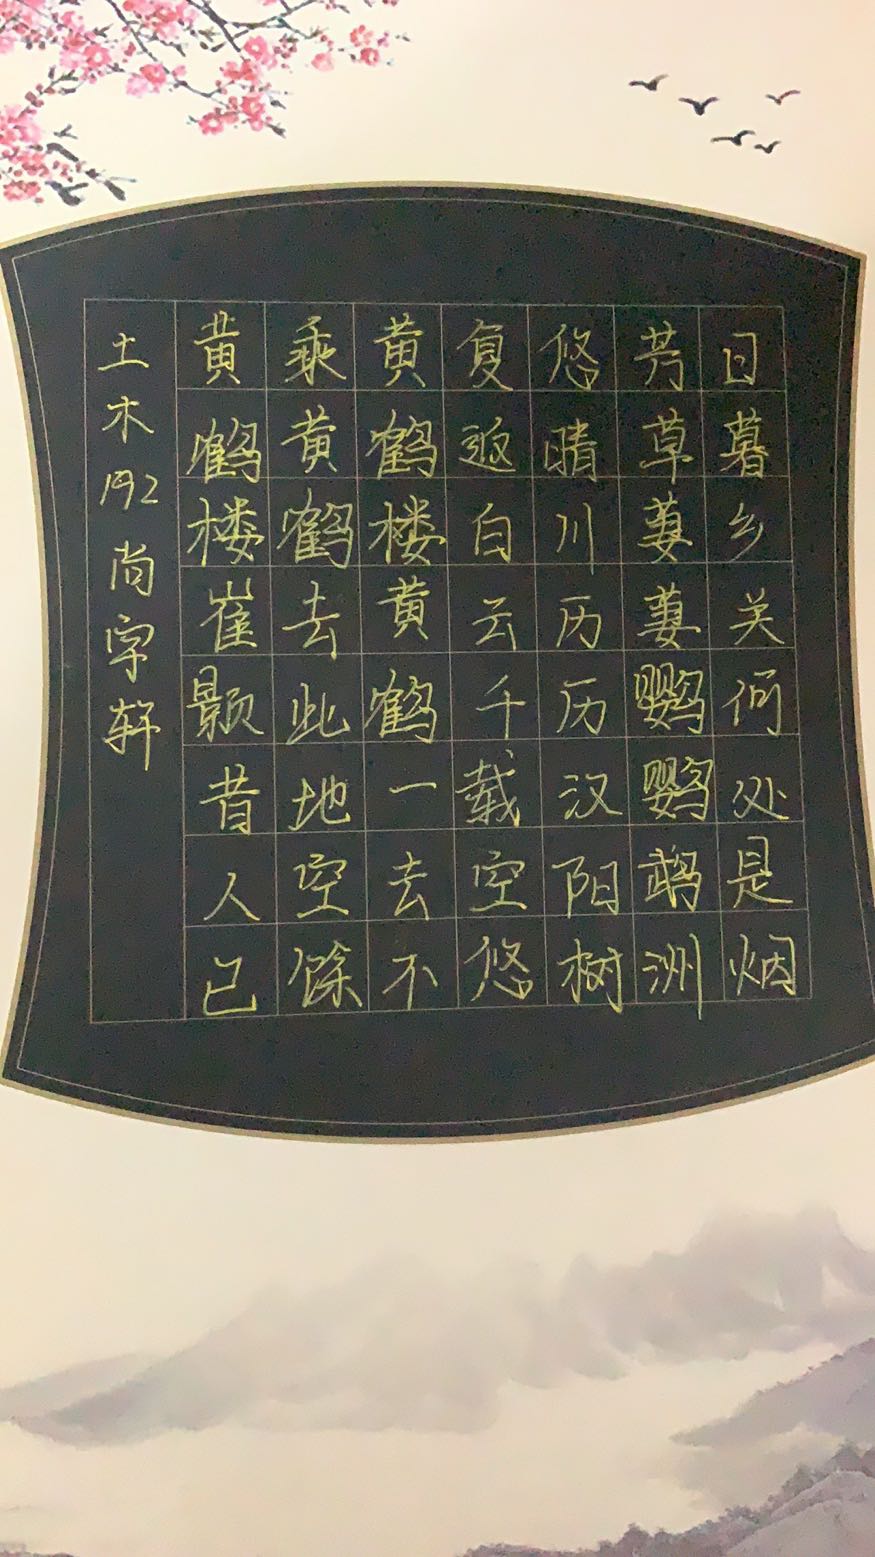 土木192尚字轩
黄鹤楼崔颢昔人已
乘黄鹤去此地空馀
黄鹤楼黄鹤一去不
复返白云千载空悠
悠晴川历历汉阳树
芳草萋萋鹦鹦鹉洲
日暮乡关何处是烟